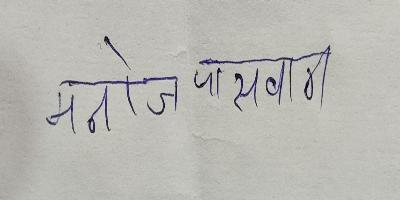 मनोज पासवान